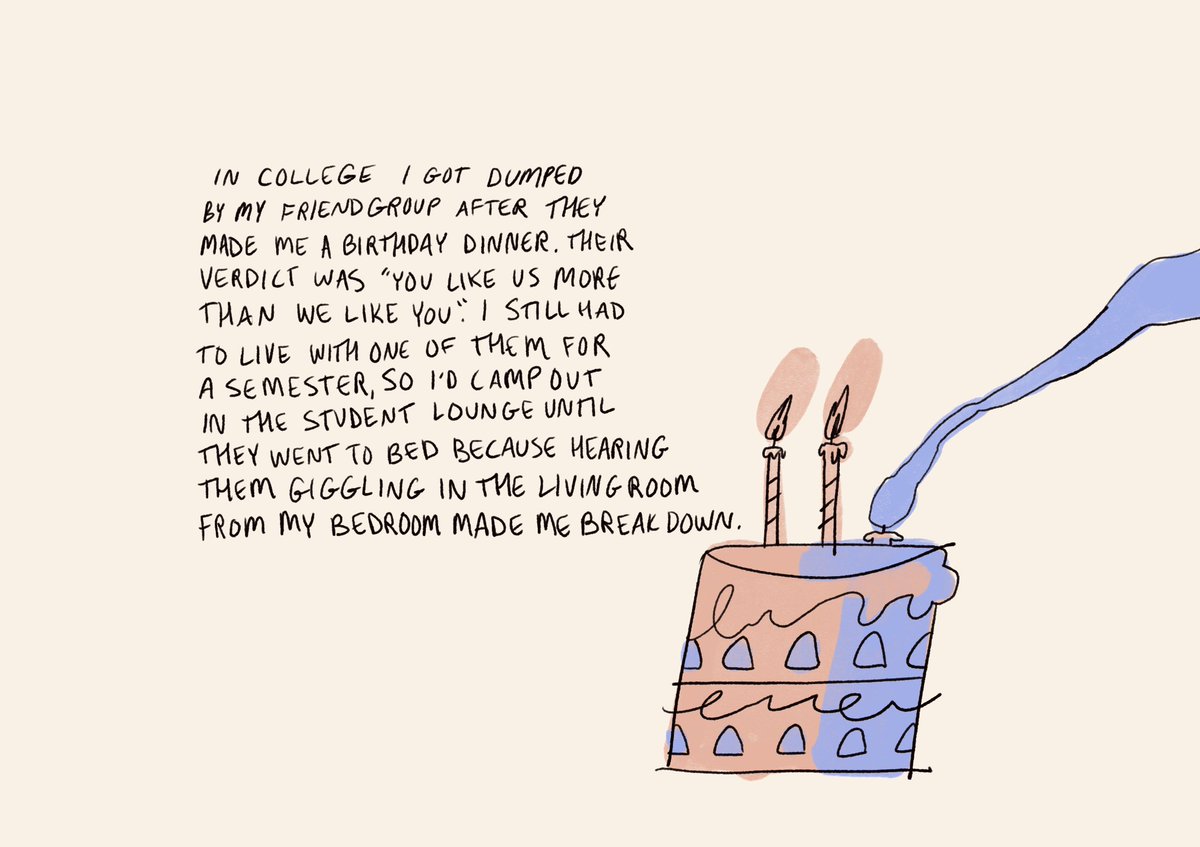 IN COLLEGE I GOT DUMPED
BY MY FRIENDGROUP AFTER THEY
MADE ME A BIRTHDAY DINNER. THEIR
VERDICT WAS "YOU LIKE US MORE
THAN WE LIKE YOU". I STILL HAD
TO LIVE WITH ONE OF THEM FOR
A SEMESTER, SO I'D CAMP OUT
IN THE STUDENT LOUNGE UNTIL
THEY WENT TO BED BECAUSE HEARING
THEM GIGGLING IN THE LIVING ROOM
FROM MY BEDROOM MADE ME BREAK DOWN.